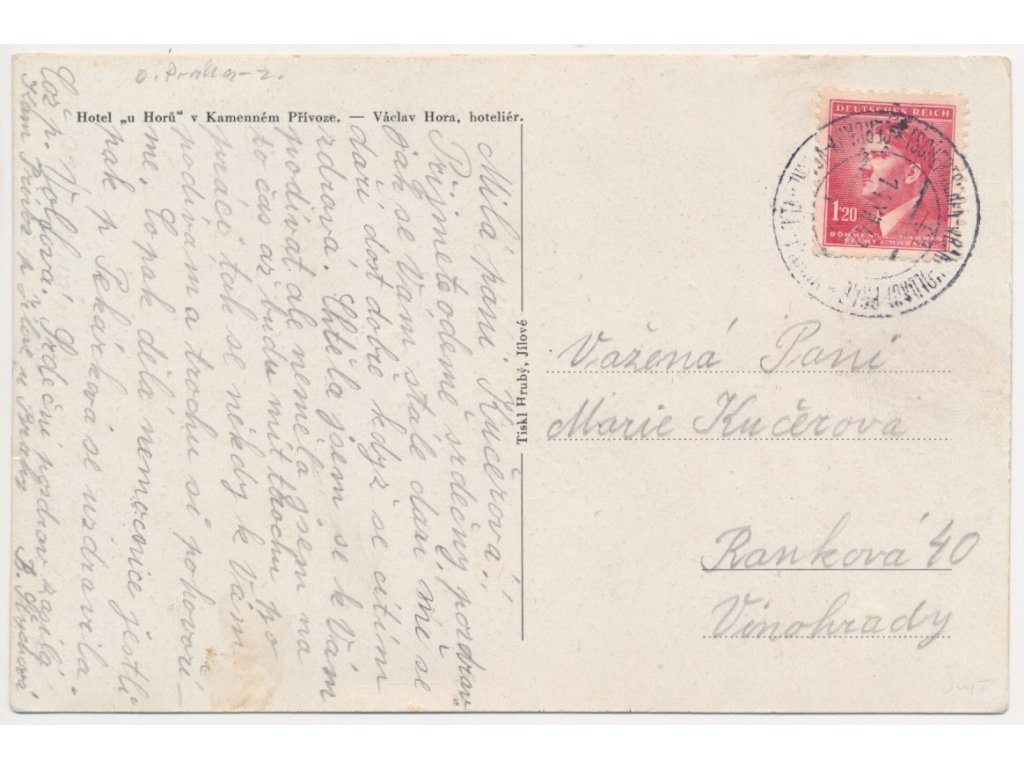 Hotel „u Horů“ v Kamenném Přívoze. — Václav Hora, hoteliér.
DEUTSCHES REICH
1·20
BÖHMEN UND MÄHREN
ČECHY A MORAVA
Milá paní Kučerová!
Přijmete odemě srdečný pozdrav,
jak se Vám stále daří mě se
daří dost dobře když se cítím
zdráva. Chtěla jsem se k Vám
podívat ale neměla jsem na
to čas až budu mít trochu po
práci tak se někdy k Vám
podívám a trochu si pohovoří-
me. Copak dělá nemocnice jestli
pak p. Pekárková se uzdravila
Což p. Srdečný pozdrav zasílá
Tiskl Hrubý, Jílové
Vážená Paní
Marie Kučerova
Ranková 40
Vinohrady